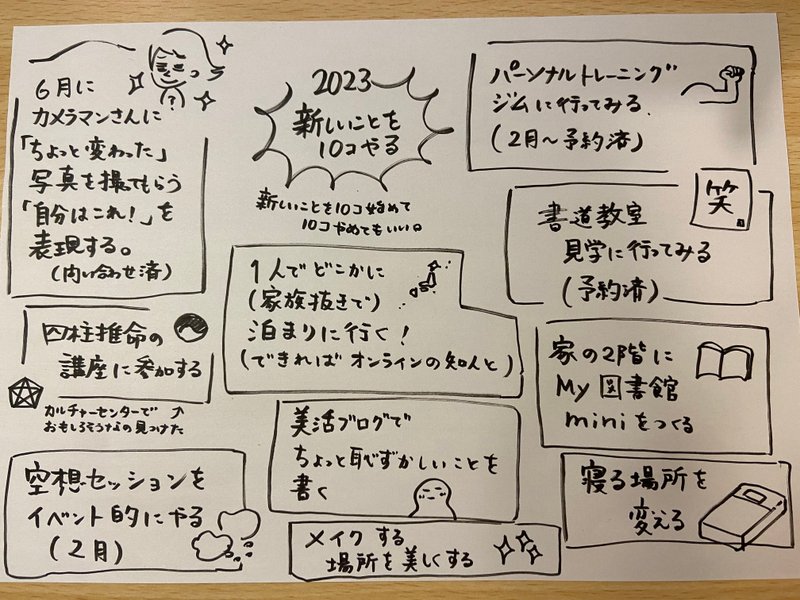 2023
新しいことを
10コやる
新しいことを10コ始めて
10コやめてもいい。
6月に
カメラマンさんに
「ちょっと変わった」
写真を撮ってもらう
「自分はこれ!」を
表現する。
(問い合わせ済)
パーソナルトレーニング
ジムに行ってみる.
(2月〜予約済)
書道教室
見学に行ってみる
(予約済)
笑
1人でどこかに
(家族抜きで)
泊まりに行く!
(できればオンラインの知人と)
四柱推命の
講座に参加する
カルチャーセンターで
おもしろそうなの見つけた
家の2階に
My 図書館
miniをつくる
美活ブログで
ちょっと恥ずかしいことを
書く
空想セッションを
イベント的にやる
(2月)
メイクする
場所を美しくする
寝る場所を
変える